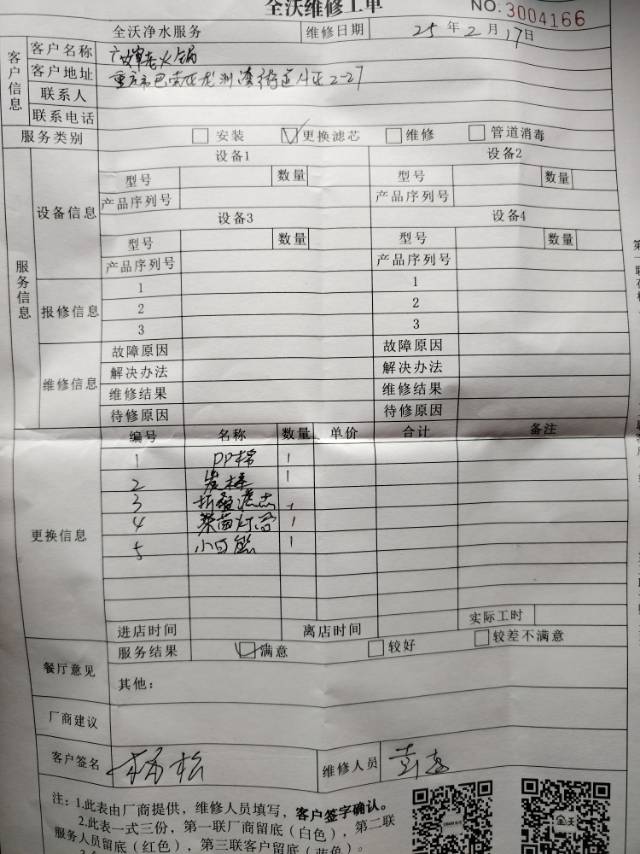 全沃维修工单 NO.3004166
全沃净水服务 维修日期 25年2月17日
客户信息
客户名称 老火锅
客户地址 重庆市巴南区龙洲湾街道 2-27
联系人
联系电话
服务类别 安装 更换滤芯 维修 管道消毒
服务信息
设备信息
设备1 设备2
型号 数量 型号 数量
产品序列号 产品序列号
设备3 设备4
型号 数量 型号 数量
产品序列号 产品序列号
报修信息
1 1
2 2
3 3
维修信息
故障原因 故障原因
解决办法 解决办法
维修结果 维修结果
待修原因 待修原因
更换信息
编号 名称 数量 单价 合计 备注
1 PP棉 1
2 炭棒 1
3 折叠滤芯 1
4 杀菌灯管 1
5 1
实际工时
进店时间 离店时间
餐厅意见
服务结果 满意 较好 较差不满意
其他：
厂商建议
客户签名 维修人员
注：1.此表由厂商提供，维修人员填写，客户签字确认。
2.此表一式三份，第一联厂商留底（白色），第二联
服务人员留底（红色），第三联客户留底（蓝色）。